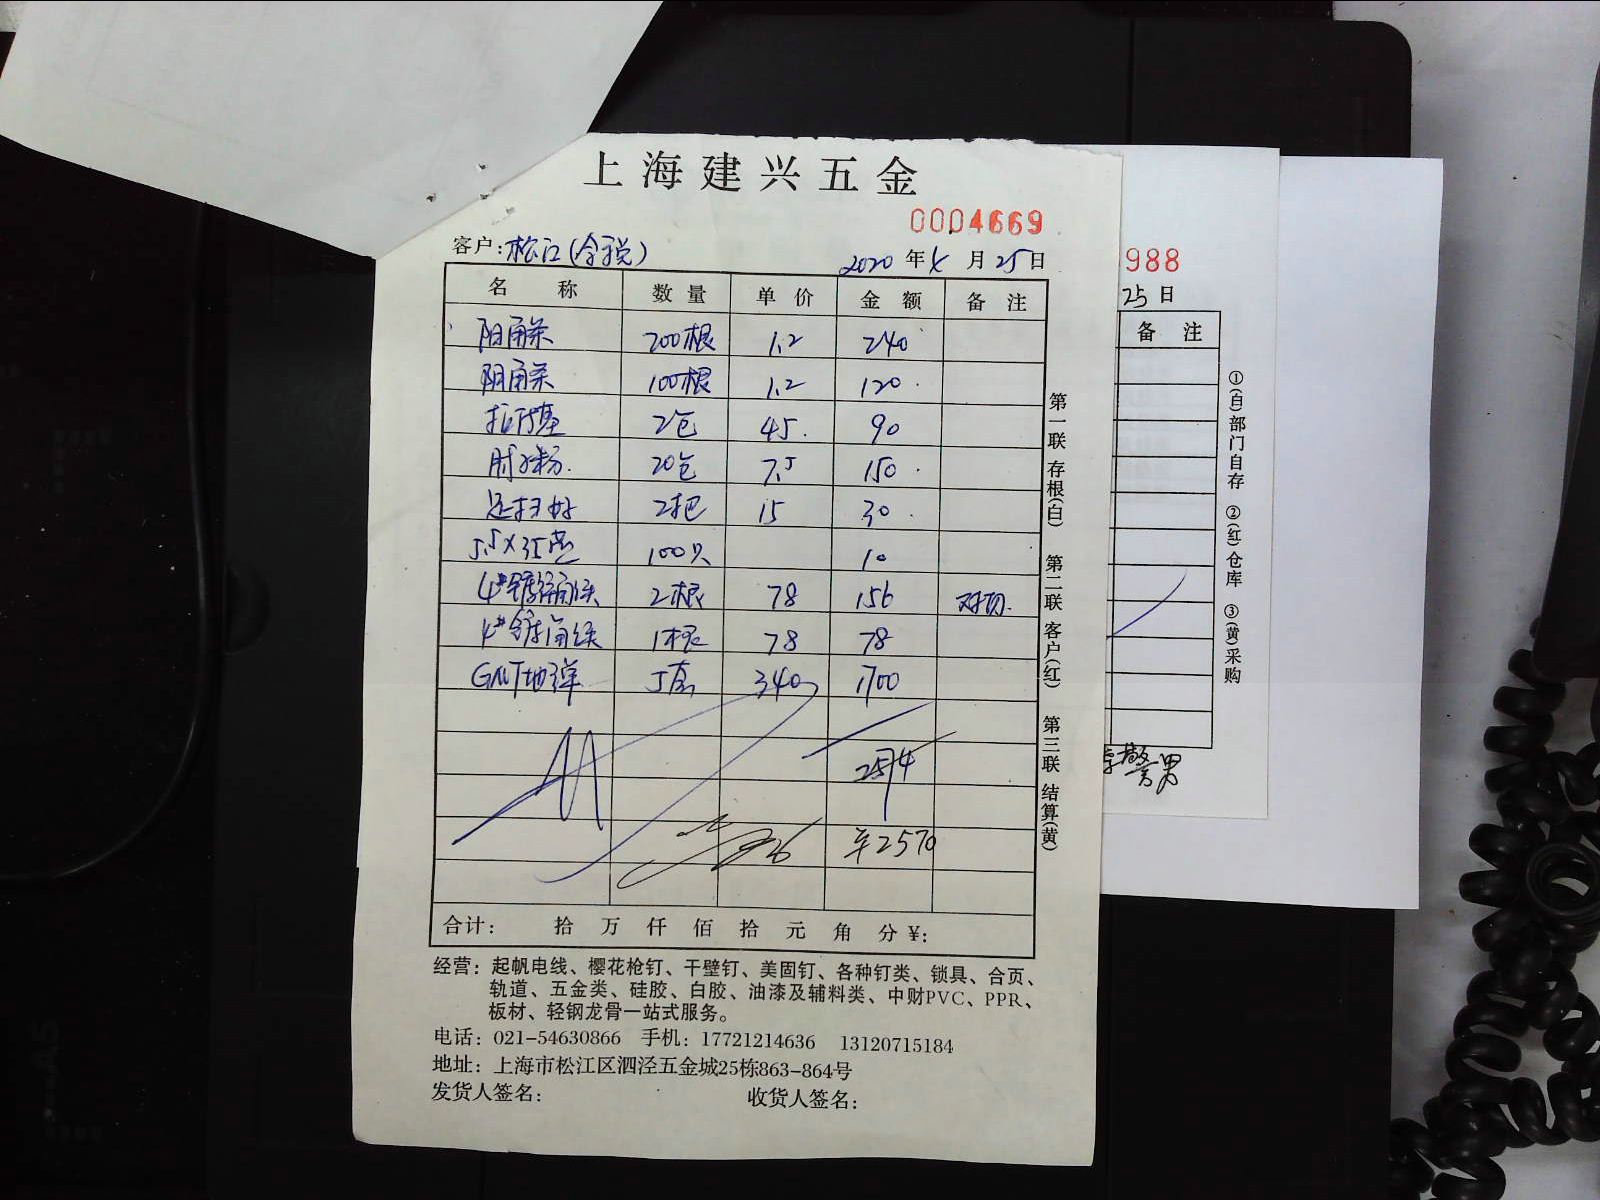 上海建兴五金
0004669
客户:松江(含税) 2020年 月25日
名称 数量 单价 金额 备注
阳角条 200根 1.2 240
阴角条 100根 1.2 120
2包 45. 90
粉. 20包 7.5 150
2把 15 30
5.5×35 100只 10
4#镀锌角铁 2根 78 156 对切.
4#镀角铁 1根 78 78
GMT地弹 5套 340 1700
2574
2570
合计: 拾 万 仟 佰 拾 元 角 分 ¥:
经营:起帆电线、樱花枪钉、干壁钉、美固钉、各种钉类、锁具、合页、
轨道、五金类、硅胶、白胶、油漆及辅料类、中财PVC、PPR、
板材、轻钢龙骨一站式服务。
电话:021-54630866 手机:17721214636 13120715184
地址:上海市松江区泗泾五金城25栋863-864号
发货人签名: 收货人签名:
第一联 存根(白) 第二联 客户(红) 第三联 结算(黄)
988
25日
备注
①(白)部门自存 ②(红)仓库 ③(黄)采购